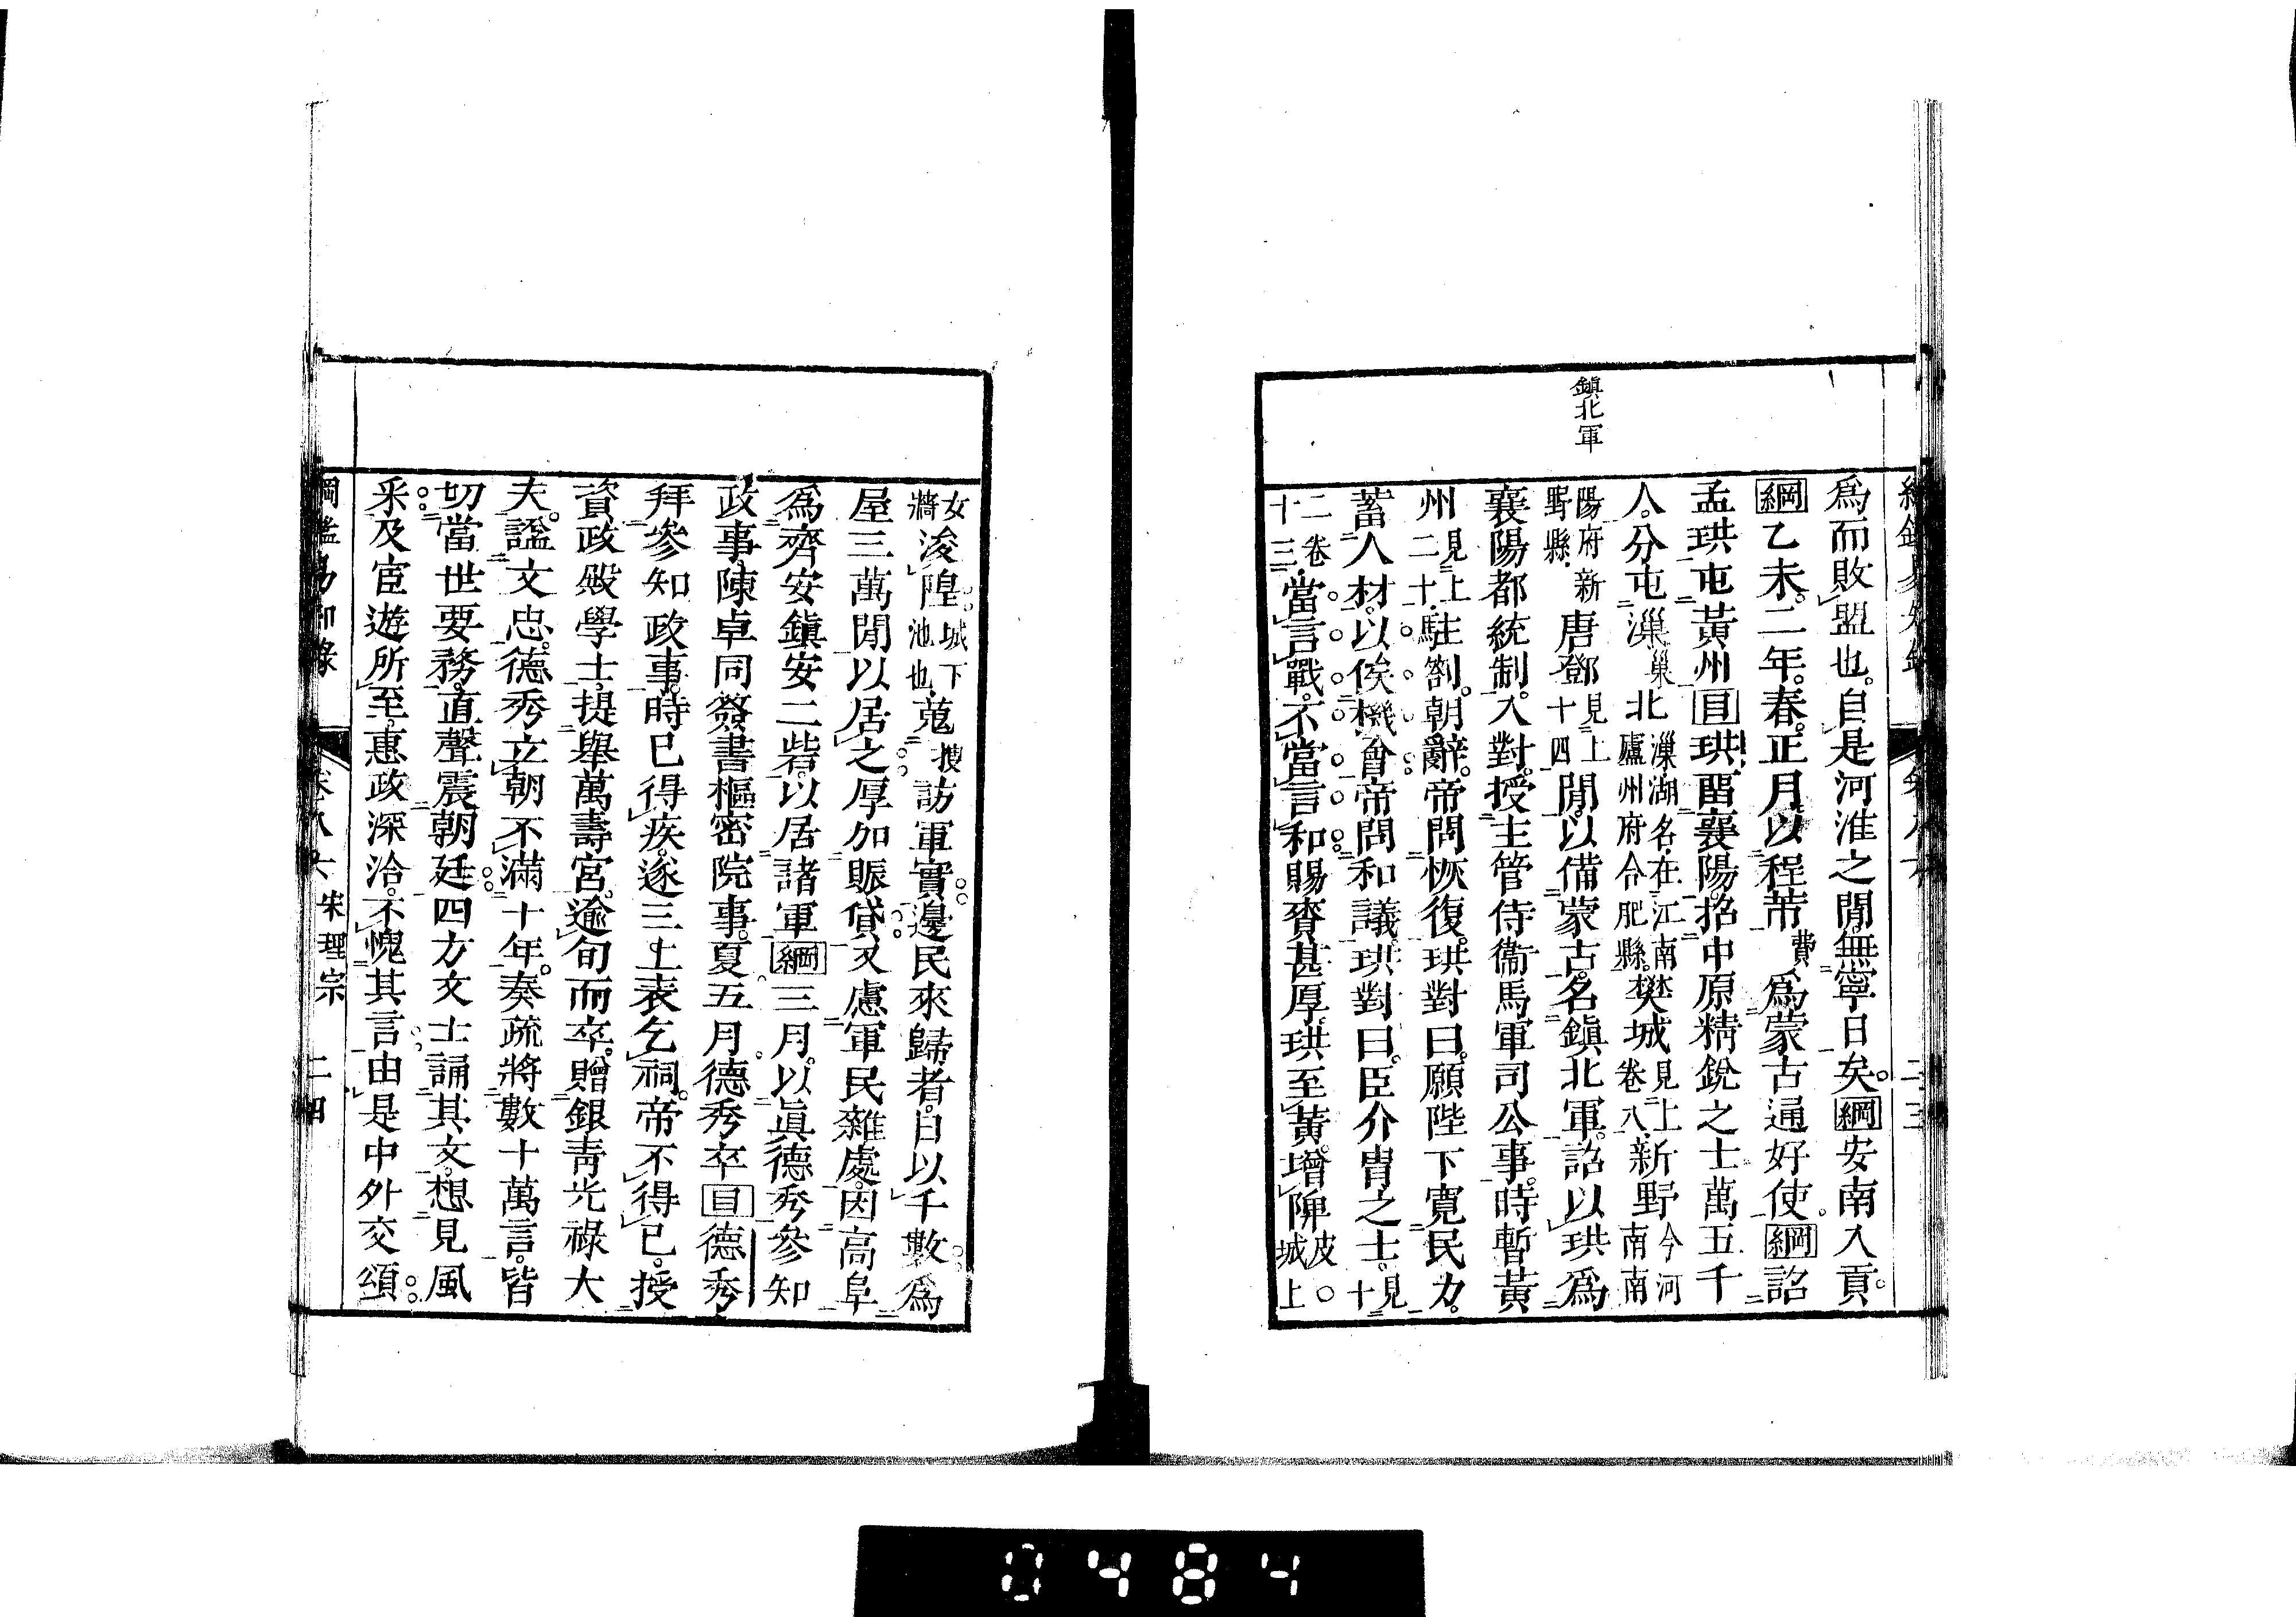 鎮北軍
爲而敗盟也。自是河淮之閒。無寧日矣。綱安南入貢。
綱乙未。二年。春。正月。以程芾費爲蒙古通好使。綱詔
孟珙屯黃州目珙畱襄陽。招中原精銳之士萬五千
人。分屯漅巢北漅湖名在江南廬州府合肥縣。樊城見上卷八新野今河南南
陽府新野縣唐鄧見上十四閒。以備蒙古。名鎮北軍。詔以珙爲
襄陽都統制。入對。授主管侍衞馬軍司公事。時暫黃
州見上二十駐劄。朝辭。帝問恢復。珙對曰。願陛下寬民力。
蓄人材。以俟機會。帝問和議。珙對曰。臣介胄之士。見十
二卷十三當言戰。不當言和。賜賚甚厚。珙至黃。增陴皮城上
女牆浚隍。城下池也蒐搜訪軍實。邊民來歸者。日以千數。爲
屋三萬閒以居之。厚加賑貸。又慮軍民雜處。因高阜
爲齊安鎮安二砦。以居諸軍綱三月。以眞德秀參知
政事。陳卓同簽書樞密院事。夏五月。德秀卒目德秀
拜參知政事。時已得疾。遂三上表乞祠。帝不得已。授
資政殿學士。提舉萬壽宮。逾旬而卒。贈銀靑光祿大
夫。諡文忠。德秀立朝不滿十年。奏疏將數十萬言。皆
切當世要務。直聲震朝廷。四方文士誦其文。想見風
采。及宦遊所至。惠政深洽。不愧其言。由是中外交頌。
宋理宗 二四
0484